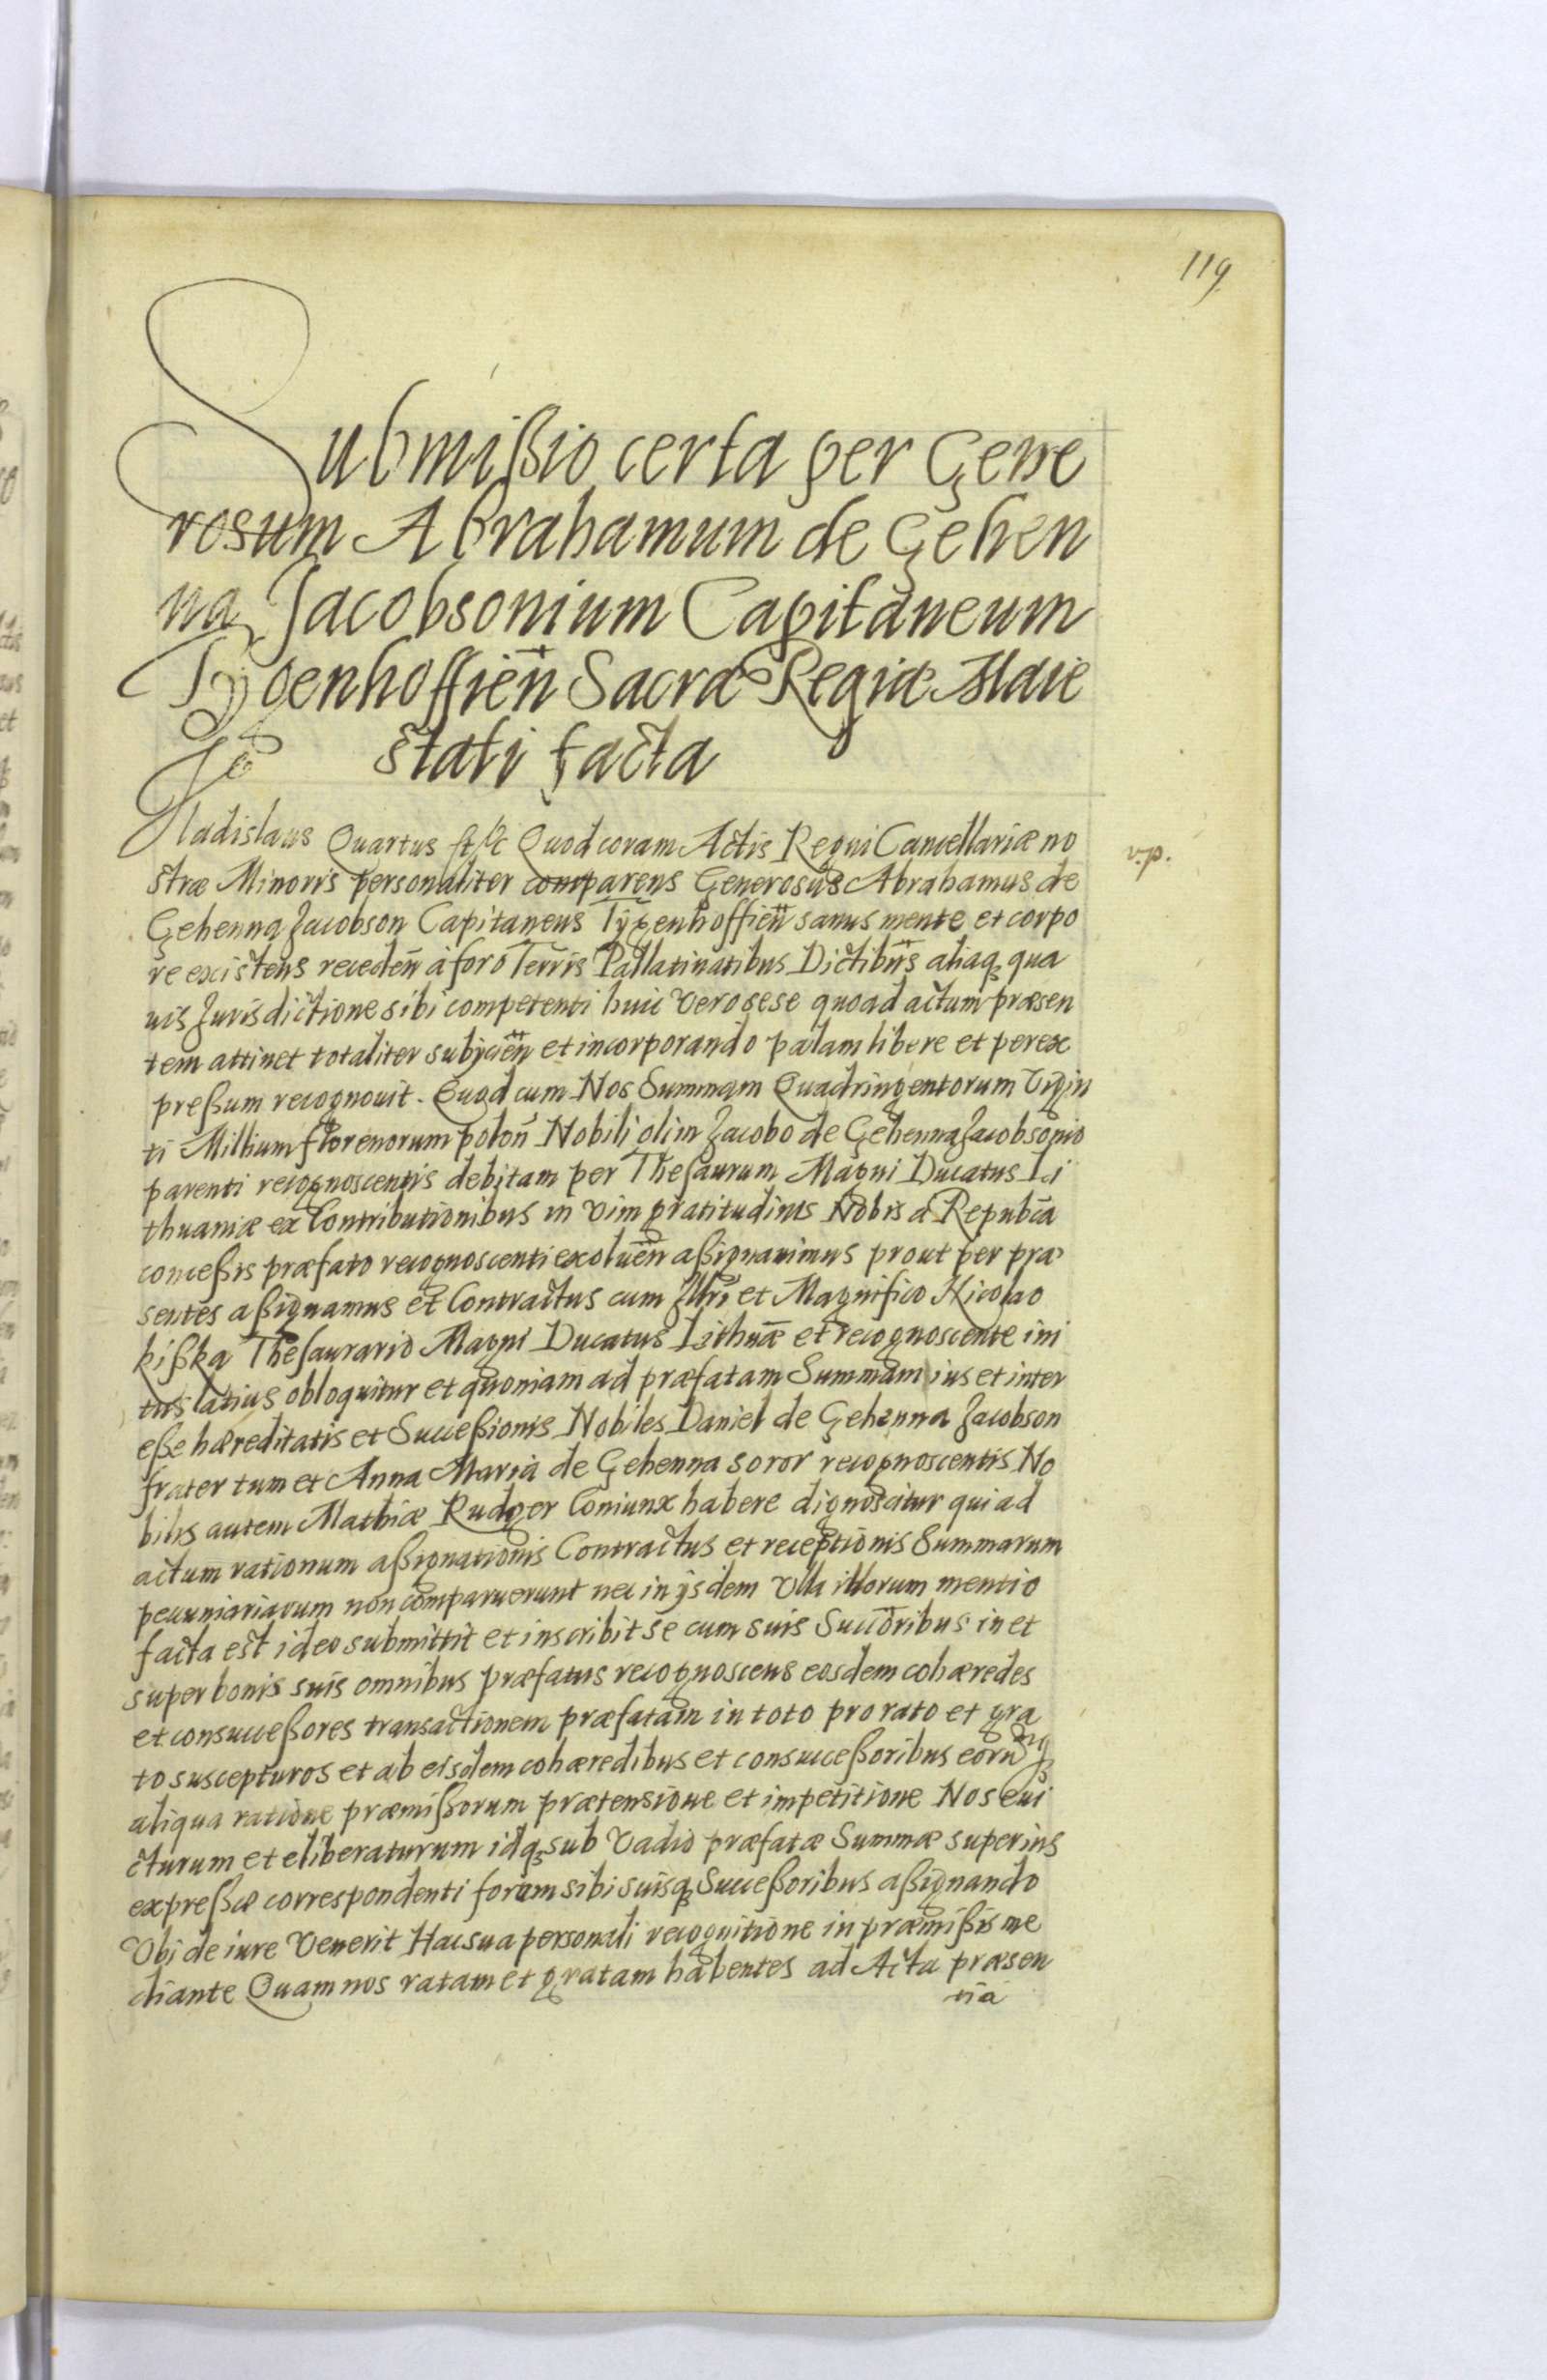 119
Submißio certa per Gene
rosum Abrahamum de Gehen
na Jacobsonium Capitaneum
Tyzenhoffien̄ Sacræ Regiæ Maie
stati facta
Vladislaus Quartus &c &c Quod coram Actis Regni Cancellariæ no
v.p.
stræ Minoris personaliter comparens Generosus Abrahamus de
Gehenna Jacobson Capitaneus Tÿzenhoffien̄ sanus mente et corpo
re existens receden̄ à foro Terris Pallatinatibus Dictibus̄ aliaq, qua
uis Jurisdictione sibi competenti huic vero sese quoad actum præsen
tem attinet totaliter subijcien̄ et incorporando palam libere et perex
preßum recognouit. Quod cum Nos Summam Quadringentorum Vigin
ti Millium florenorum polon̄ Nobili olim Jacobo de Gehenna Jacobsonio
parenti recognoscentis debitam per Thesaurum Magni Ducatus Li
thuaniæ ex Contributionibus in vim gratitudinis Nobis a Repubc̄a
conceßis præfato recognoscenti exoluen̄ aßignauimus prout per præ
sentes aßignamus et Contractus cum Illr̄i et Magnifico Nicolao
kißka Thesaurario Magni Ducatus Lithuǣ et recognoscente ini
tus latius obloquitur et quoniam ad præfatam Summam ius et inter
eße hæreditatis et Succeßionis Nobiles Daniel de Gehenna Jacobson
frater tum et Anna Maria de Gehenna soror recognoscentis No
bilis autem Mathiæ Rudger Coniunx habere dignoscitur qui ad
actum rationum aßignationis Contractus et receptionis Summarum
pecuniariarum non comparuerunt nec in ijsdem vlla illorum mentio
facta est ideo submittit et inscribit se cum suis Succ̄oribus in et
super bonis suis omnibus præfatus recognoscens eosdem cohæredes
et consucceßores transactionem præfatam in toto pro rato et gra
to suscepturos et ab eisdem cohæredibus et consucceßoribus eorū
aliqua ratione præmißorum prætensione et impetitione Nos eui
cturum et eliberaturum idq, sub Vadio præfatæ Summæ superius
expreßæ correspondenti forum sibi suisq, Succeßoribus aßignando
Vbi de iure Venerit Hac sua personali recognitione in præmißis me
diante Quam nos ratam et gratam habentes ad Acta præsen
tia